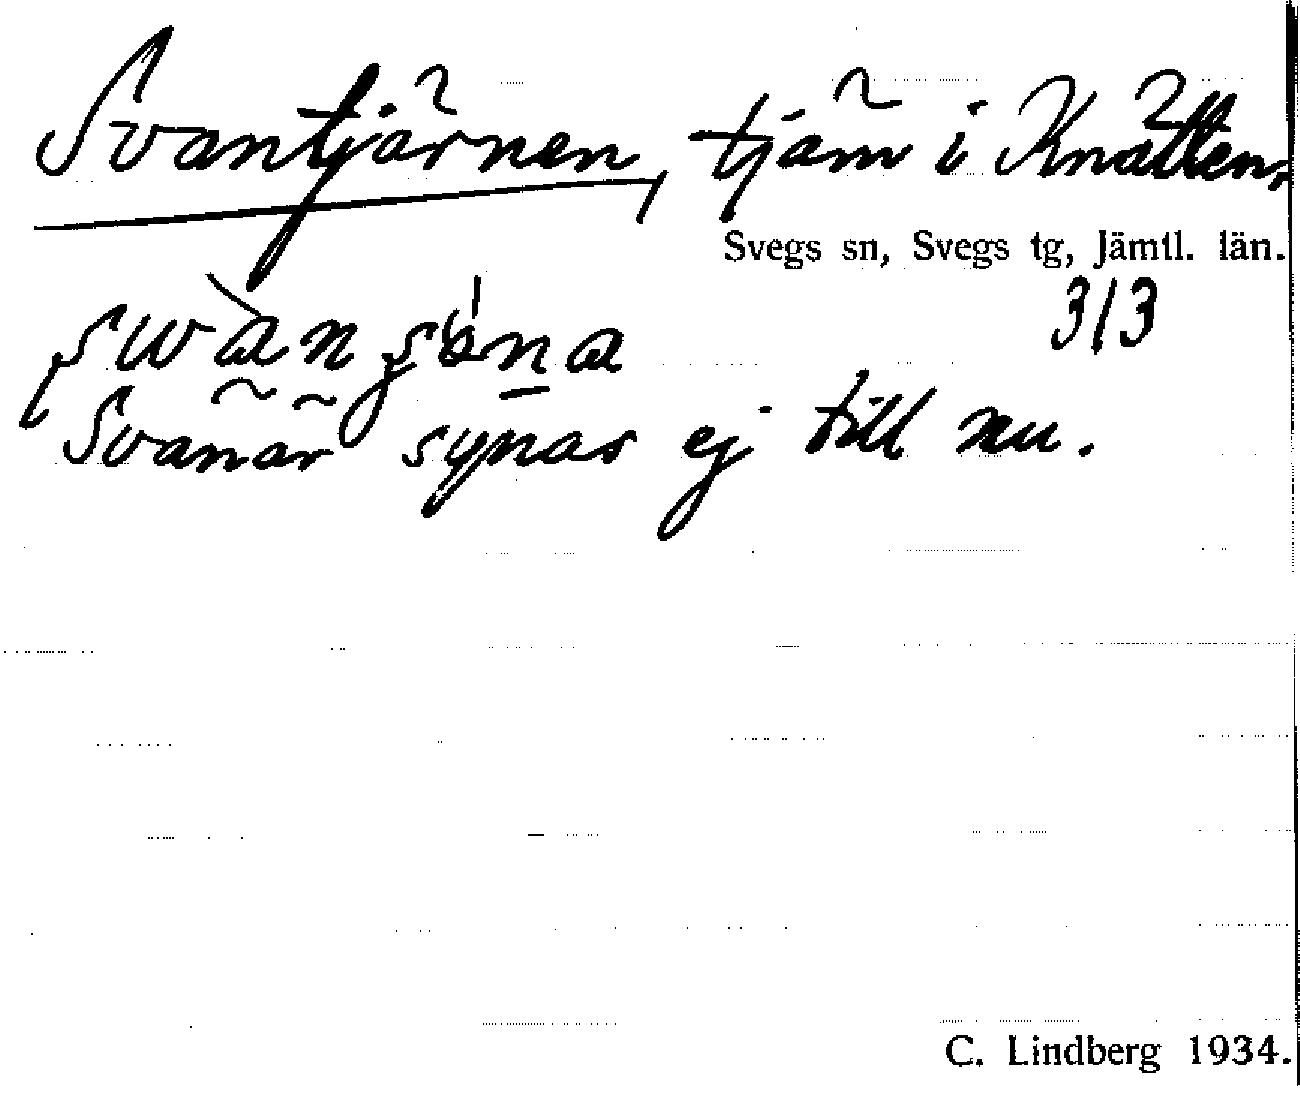 Svantjärnen, tjärn i Knätten,
Svegs sn, Svegs tg, Jämtl. län.
313
Svanar synas ej till nu.
C. Lindberg 1934.